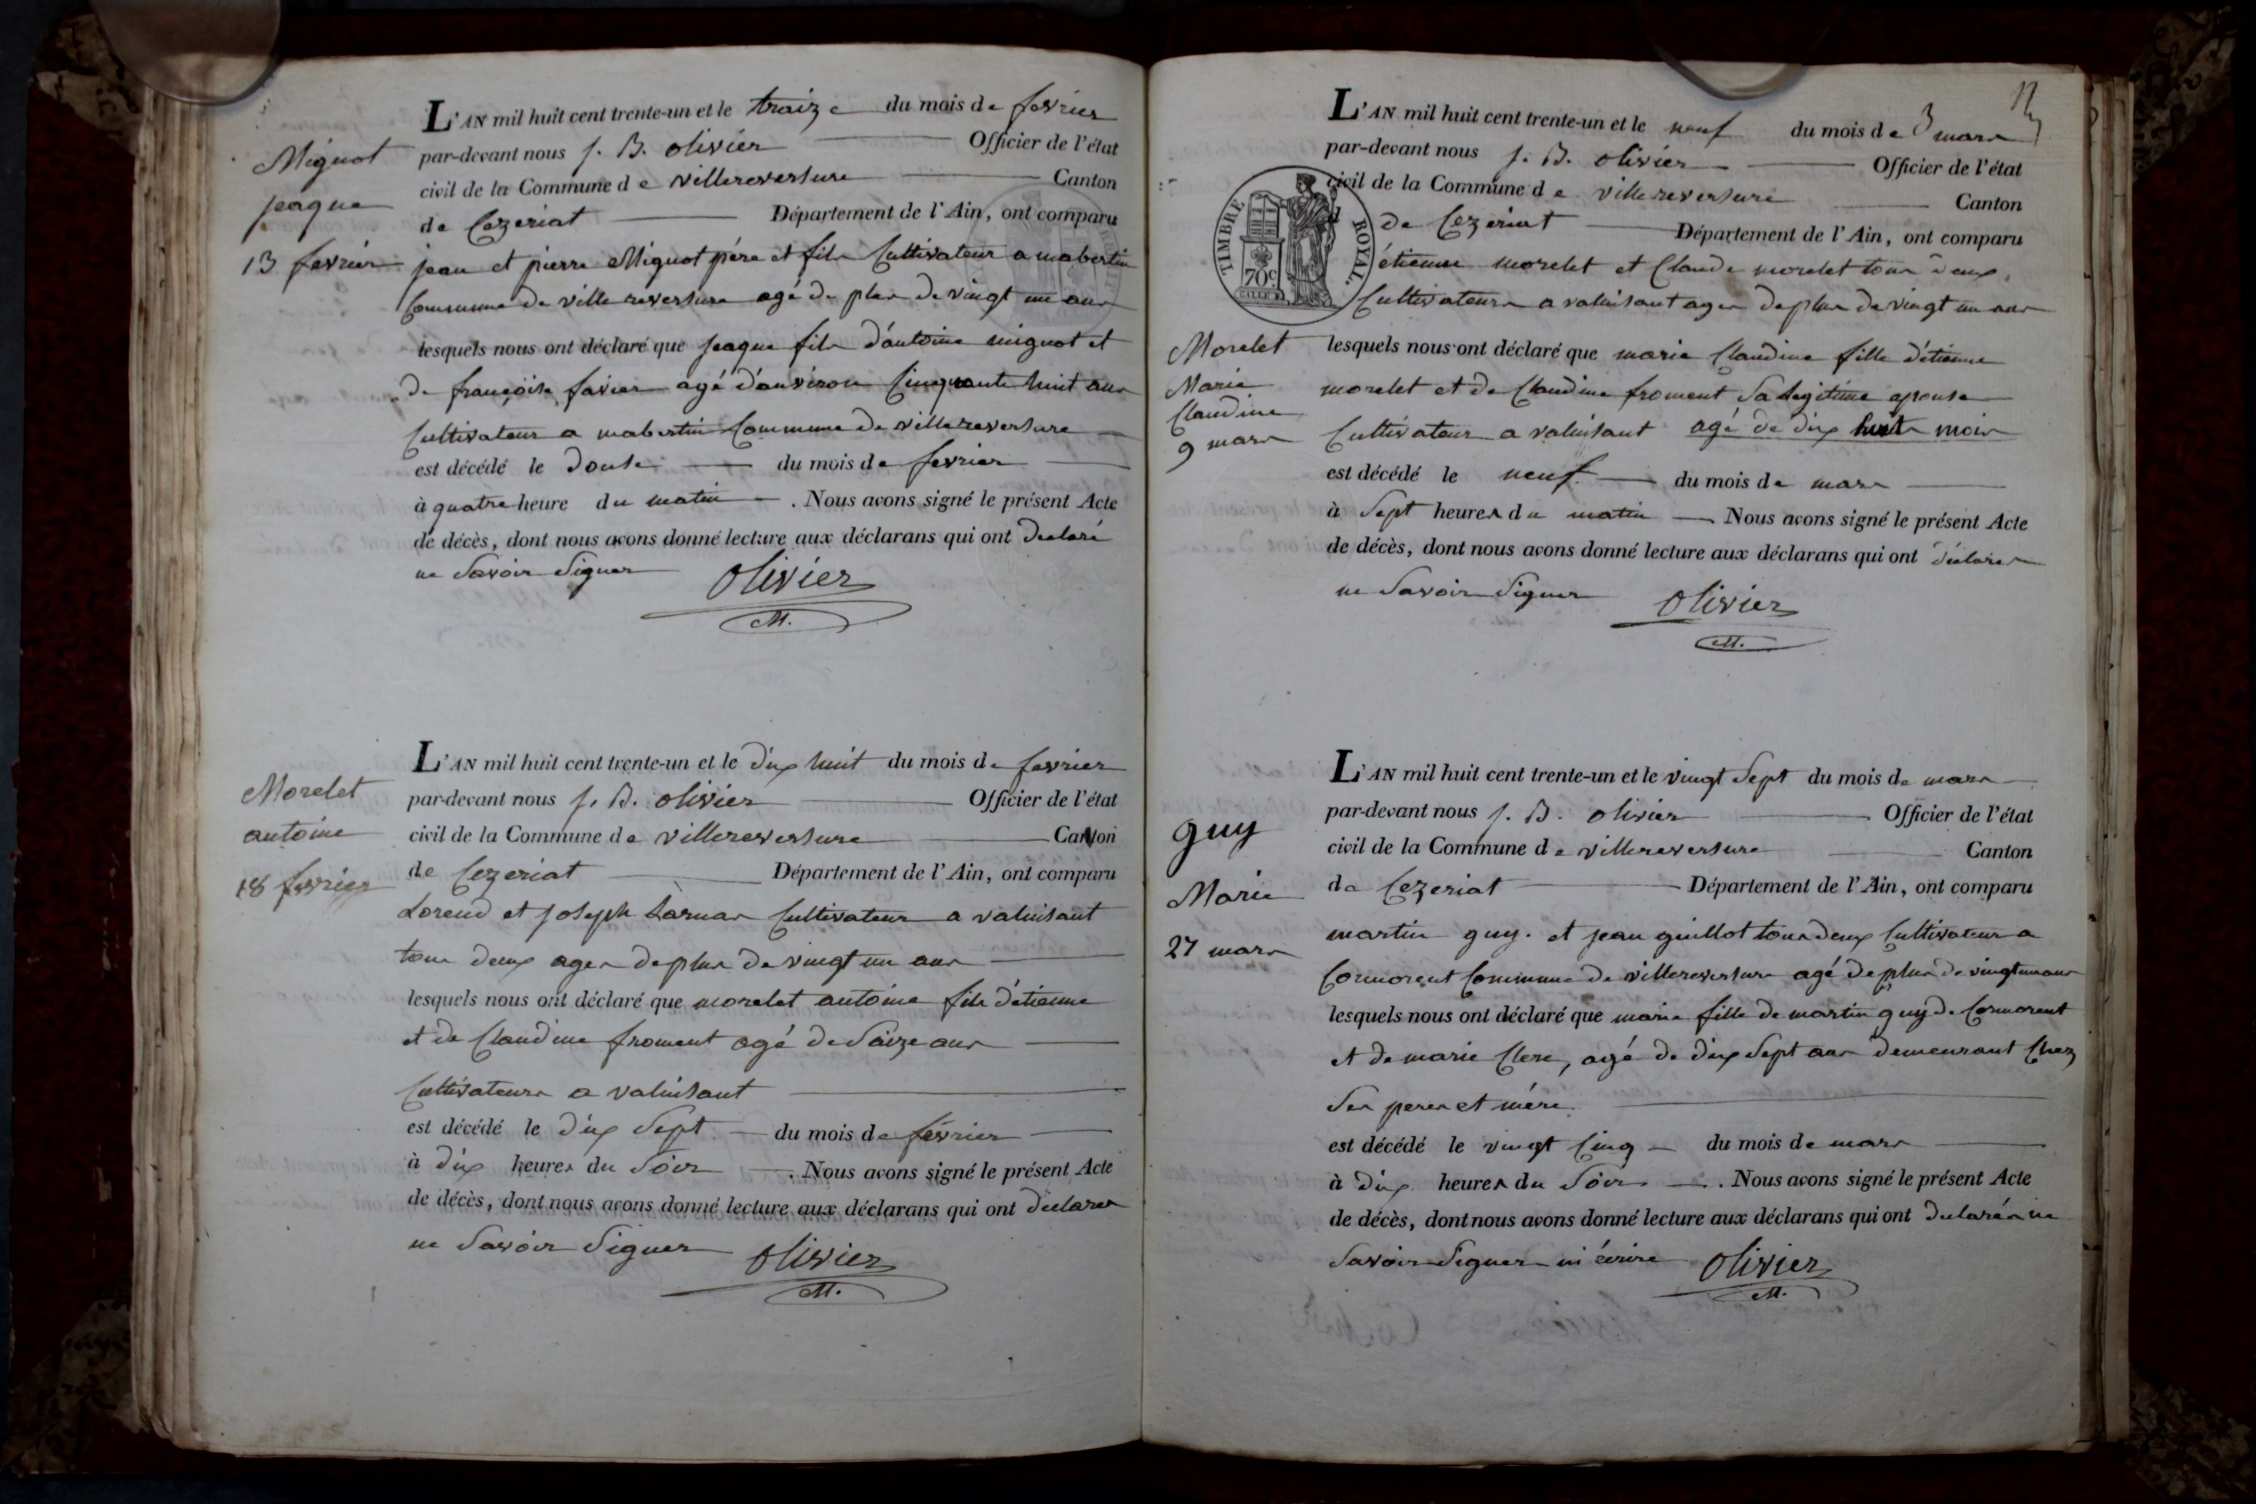 Mignot
jeaque
13 fevrier
L'AN mil huit cent trente-un et le traize du mois de fevrier
par-devant nous J. B. olivier Officier de l'état
civil de la Commune de villereversure Canton
de Cezeriat Département de l'Ain, ont comparu
jean et pierre Mignot pére et fils Cultivateur a mabertin
Commune de villereversure agé de plus de vingt un ans
lesquels nous ont déclaré que jeaque fils d'antoine mignot et
de françoise favier agé d'anviron Cinquante huit ans
Cultivateur a mabertin Commune de villereversure
est décédé le douse du mois de fevrier
à quatre heure du matin. Nous avons signé le présent Acte
de décès, dont nous avons donné lecture aux déclarans qui ont declaré
ne Savoir Signer olivier
M.
Morelet
antoine
18 fevrier
L'AN mil huit cent trente-un et le dix huit du mois de fevrier
par-devant nous J. B. olivier Officier de l'état
civil de la Commune de villereversure Canton
de Cezeriat Département de l'Ain, ont comparu
et joseph Cultivateur a valuisant
tous deux ages de plus de vingt un ans
lesquels nous ont déclaré que morelet antoine fils d'étienne
et de Claudine froment agé de Saize ans
Cultivateurs a valuisant
est décédé le dix Sept du mois de février
à dix heures du Soir. Nous avons signé le présent Acte
de décès, dont nous avons donné lecture aux déclarans qui ont declarer
ne Savoir Signer olivier
M.
L'AN mil huit cent trente-un et le neuf du mois de mars
par-devant nous J. B. olivier Officier de l'état
civil de la Commune de villereversure Canton
de Cezeriat Département de l'Ain, ont comparu
TIMBRE ROYAL.
70c.
étienne morelet et Claude morelet tous deux
Cultivateurs a valuisant ages de plus de vingt un ans
Morelet
Marie
Claudine
9 mars
lesquels nous ont déclaré que marie Claudine fille d'étienne
morelet et de Claudine froment Sa legitime epouse
Cultivateur a valuisant agé de dix huit mois
est décédé le neuf du mois de mars
à Sept heures du matin Nous avons signé le présent Acte
de décès, dont nous avons donné lecture aux déclarans qui ont déclarer
ne Savoir Signer olivier
M.
guy
Marie
27 mars
L'AN mil huit cent trente-un et le vingt Sept du mois de mars
par-devant nous J. B. olivier Officier de l'état
civil de la Commune de villereversure Canton
de Cezeriat Département de l'Ain, ont comparu
martin guy. et jean guillot tous deux Cultivateur a
Cormorent Commune de villereversure agé de plus de vingt un ans
lesquels nous ont déclaré que marie fille de martin guy de Cormorent
et de marie Clerc, agé de dix Sept ans demeurant Chez
Ses peres et mére
est décédé le vingt Cinq du mois de mars
à dix heures du Soir. Nous avons signé le présent Acte
de décès, dont nous avons donné lecture aux déclarans qui ont declarés ne
Savoir Signer ni écrire olivier
M.